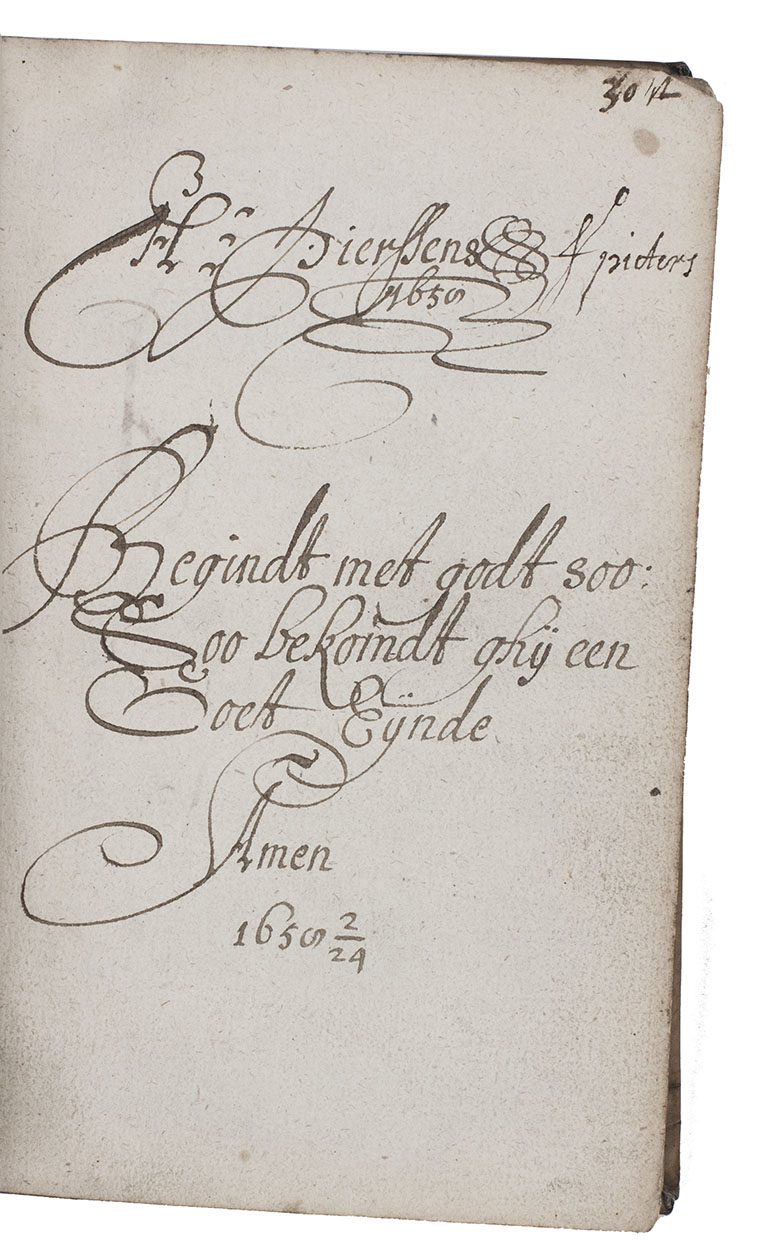 Pierssens pieters
1658
Begindt met godt soo:
Soo bekomdt ghij een
Soet Eÿnde
Amen
1658 2/24